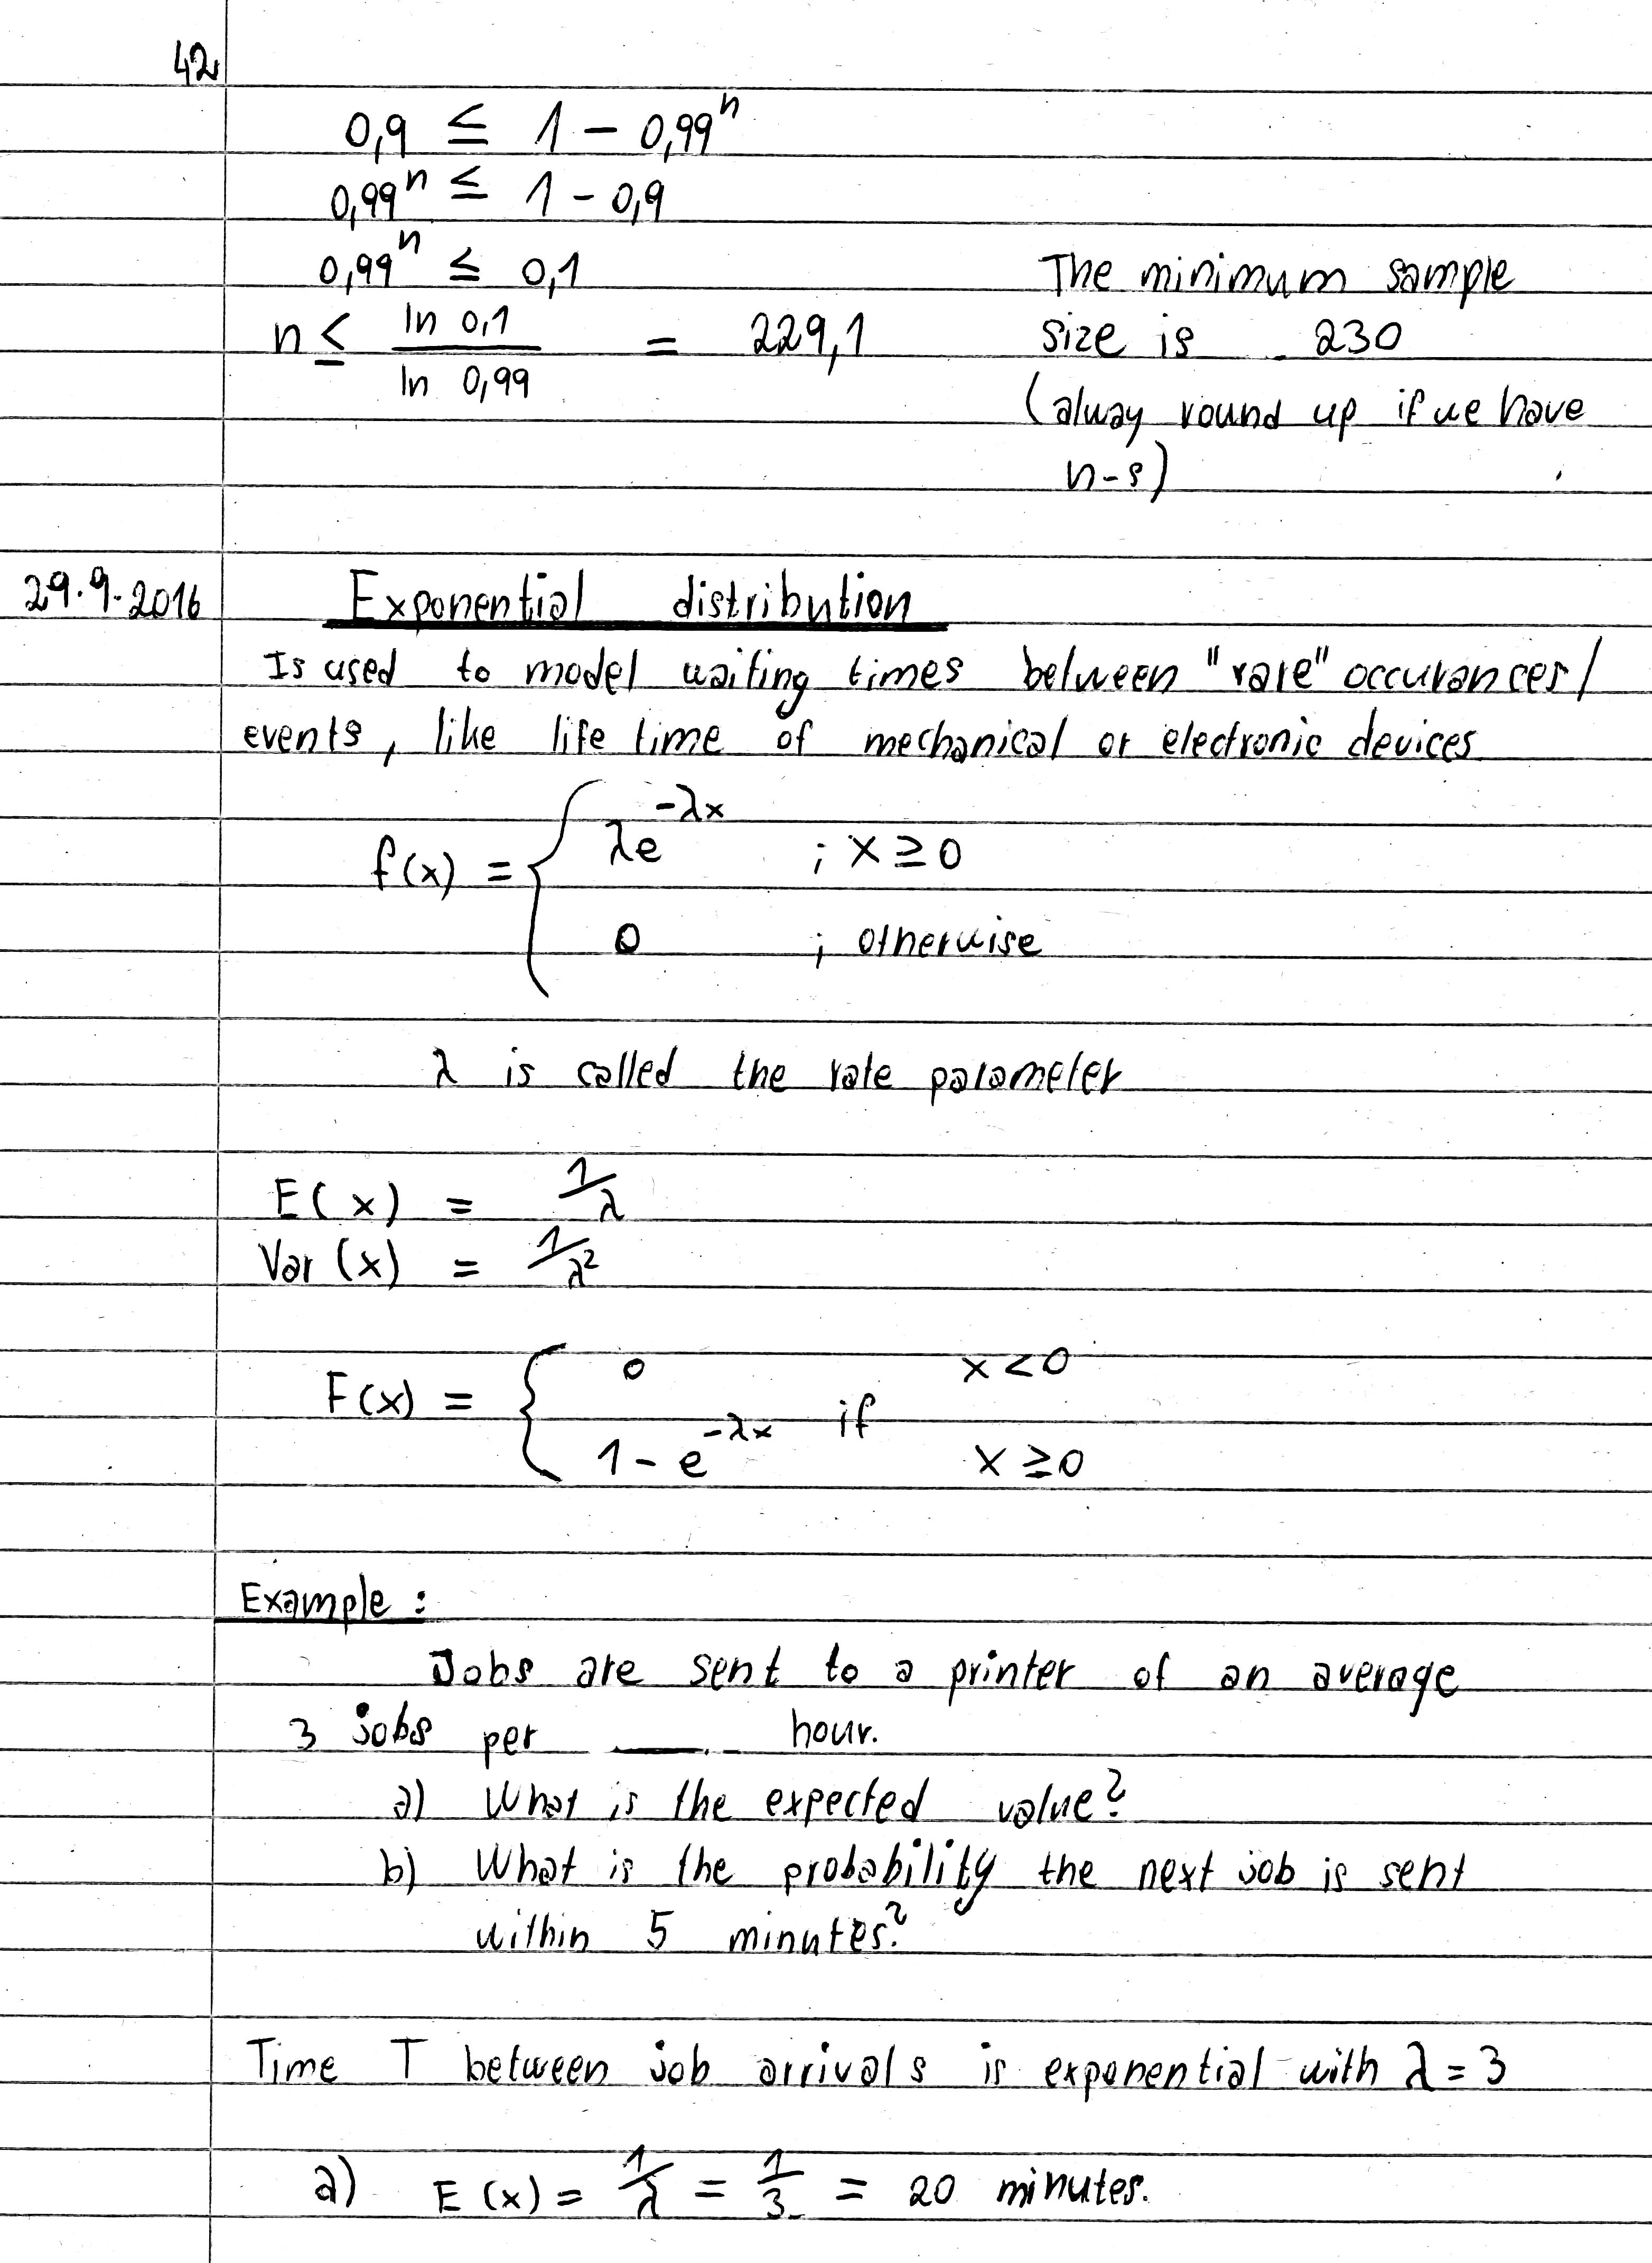 42
0,9 ≤ 1 - 0,99^n
0,99^n ≤ 1 - 0,9
0,99^n ≤ 0,1
n ≤ ln 0,1 / ln 0,99 = 229,1
The minimum sample
size is 230
(alway round up if we have
n-s)
29.9.2016 Exponential distribution
Is used to model waiting times between "rare" occurances/
events, like life time of mechanical or electronic devices
f(x) = { λe^-λx ; x ≥ 0
0 ; otherwise
λ is called the rate parameter
E(x) = 1/λ
Var(x) = 1/λ²
F(x) = { 0 x < 0
if
1 - e^-λx x ≥ 0
Example:
Jobs are sent to a printer of an average
3 jobs per hour.
a) What is the expected value?
b) What is the probability the next job is sent
within 5 minutes?
Time T between job arrivals is exponential with λ = 3
a) E(x) = 1/λ = 1/3 = 20 minutes.